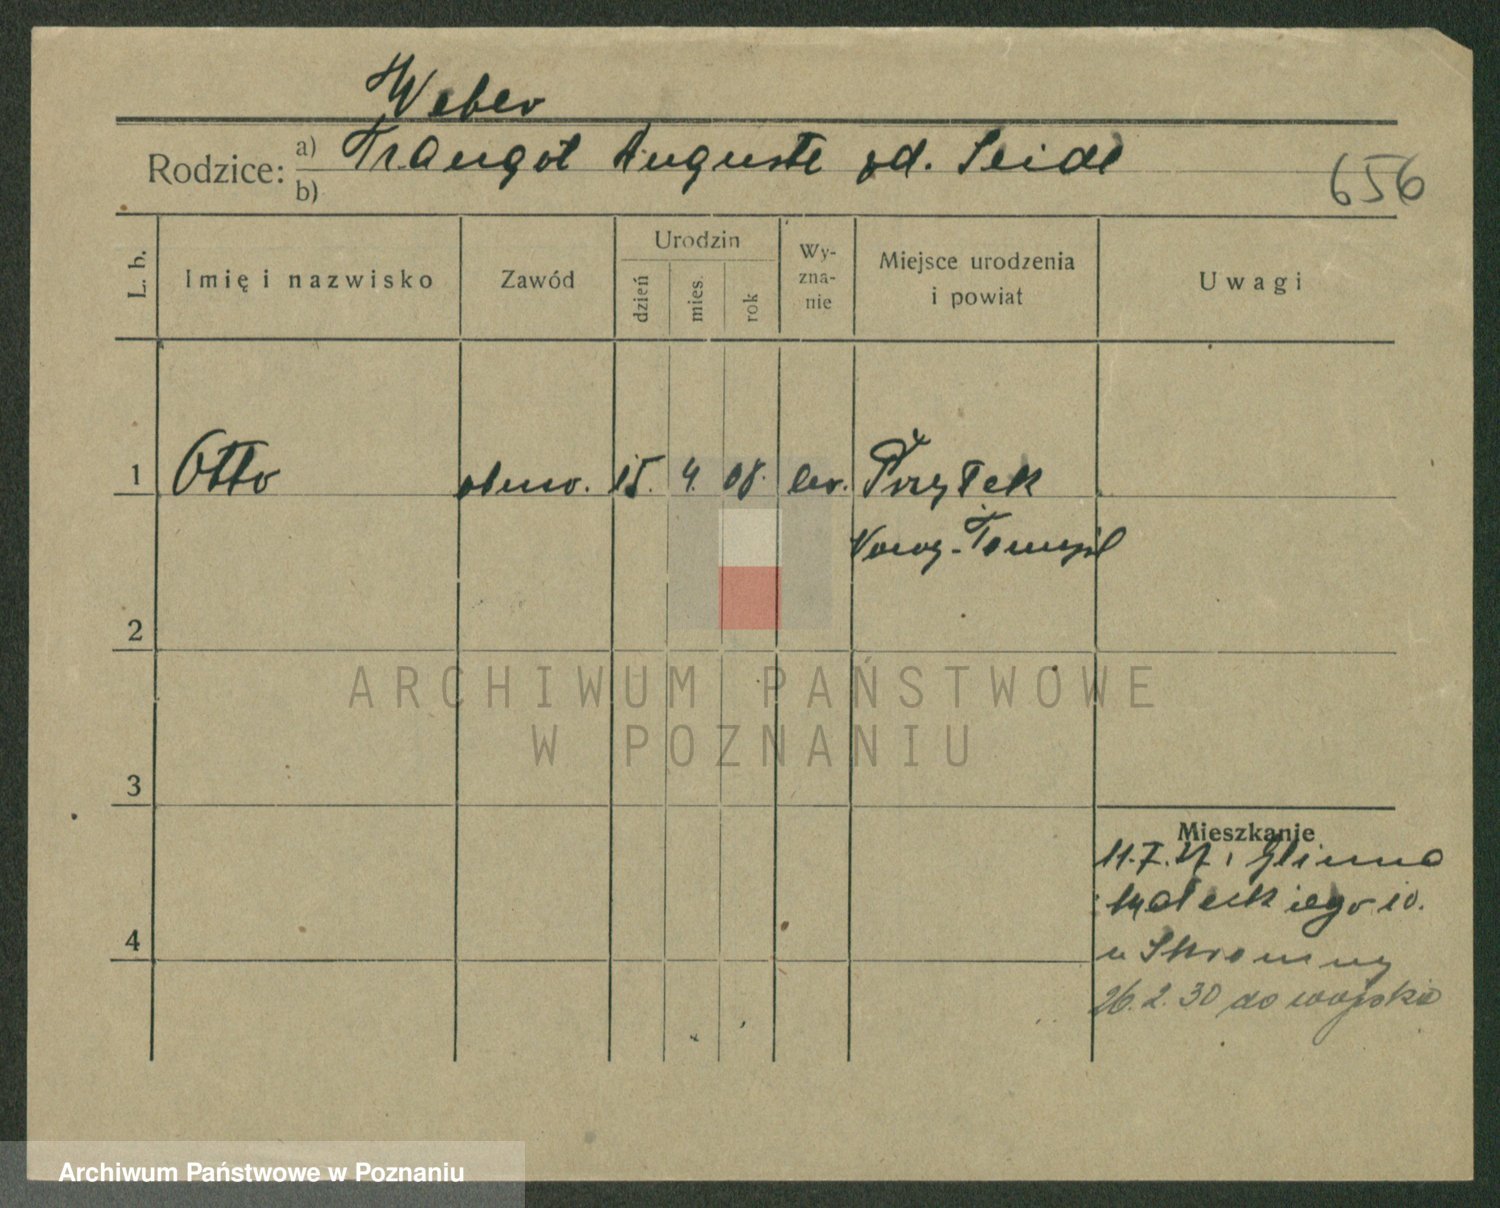 Weber
Rodzice: a) Traugot Auguste zd. Seide
b)
656
L. b.
Imię i nazwisko
Zawód
Urodzin
dzień
mies.
rok
Wy-
zna-
nie
Miejsce urodzenia
i powiat
Uwagi
1 Otto 15. 4. 08. Przyłek
Nowy-Tomyśl
2
ARCHIWUM PAŃSTWOWE
W POZNANIU
3
Mieszkanie
11.7.27
10.
4
u Skromny
26.2.30 do wojska
Archiwum Państwowe w Poznaniu